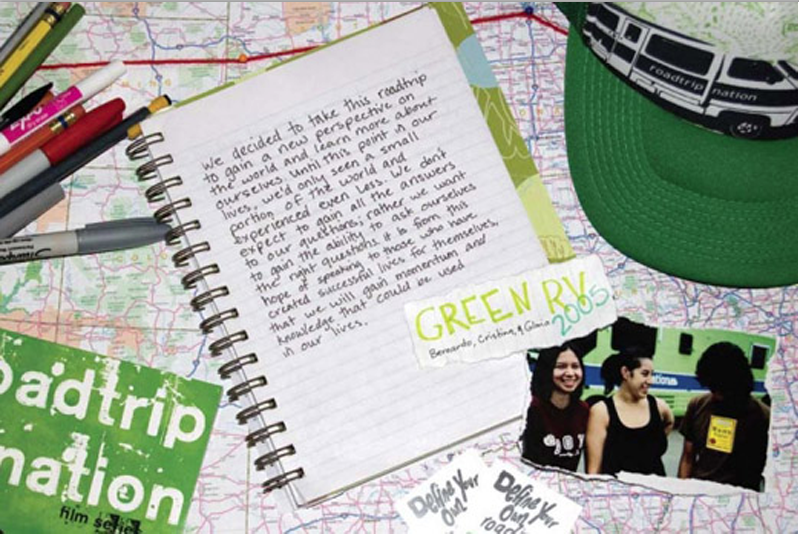 roadtrip nation
we decided to take this roadtrip
to gain a new perspective on
the world and learn more about
ourselves. until this point in our
lives, we'd only seen a small
portion of the world and
experienced even less. We don't
expect to gain all the answers
to our questions; rather we want
to gain the ability to ask ourselves
the right questions. it is from this
hope of speaking to those who have
created successful lives for themselves,
that we will gain momentum and
knowledge that could be used
in our lives.
GREEN RV
2005
Bernardo, Cristina, & Gloria
oadtrip
nation
film series
Define Your
Own
Define Your
Own
road